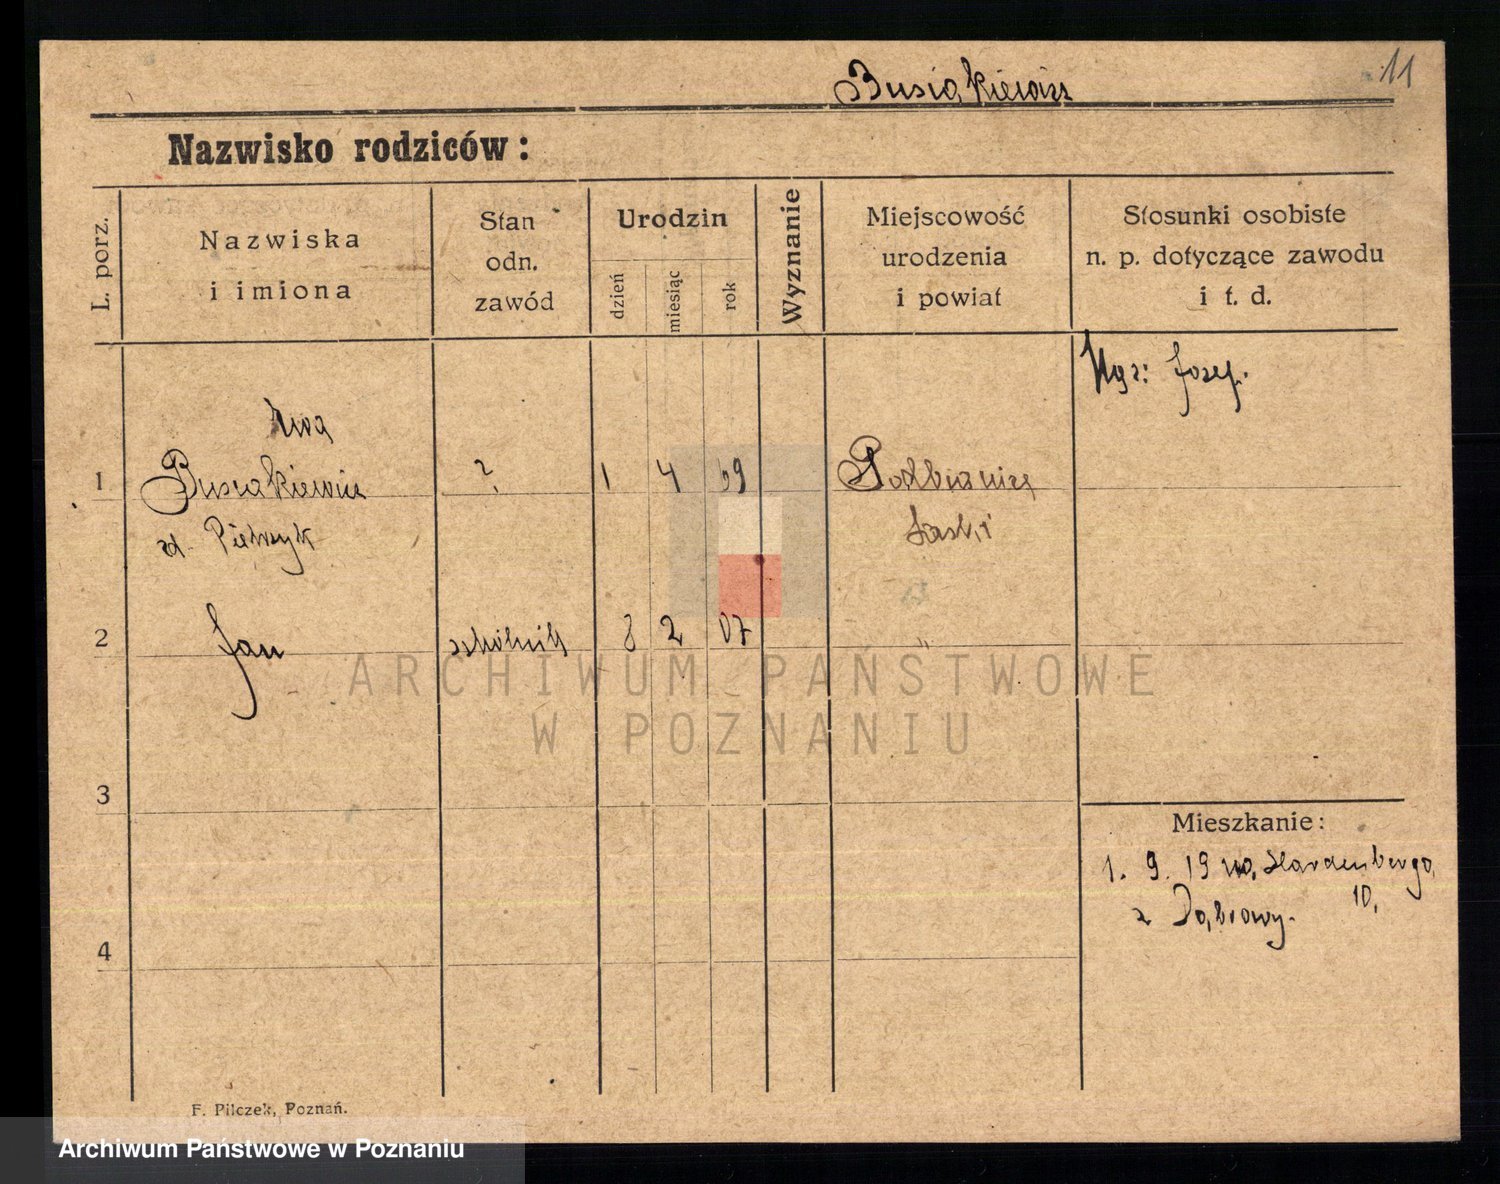 11
Busiakiewicz
Nazwisko rodziców:
L. porz.
Nazwiska
i imiona
Stan
odn.
zawód
Urodzin
dzień
miesiąc
rok
Wyznanie
Miejscowość
urodzenia
i powiat
Stosunki osobiste
n. p. dotyczące zawodu
i t. d.
Josef.
1
Busiakiewicz
?
1 4 69
Łaski
2 Jan szkolnik 8 2 07 "
3
4
Mieszkanie:
1. 9. 19 Hardenbergo,
10,
z Dąbrowy.
F. Pilczek, Poznań.
ARCHIWUM PAŃSTWOWE
W POZNANIU
Archiwum Państwowe w Poznaniu